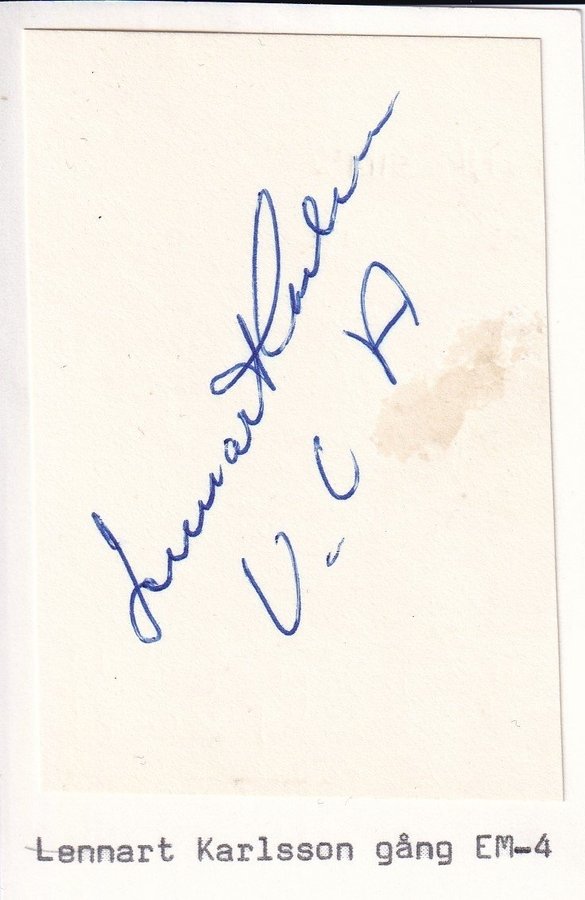 Lennart Karlsson
V. C K
Lennart Karlsson gång EM-4